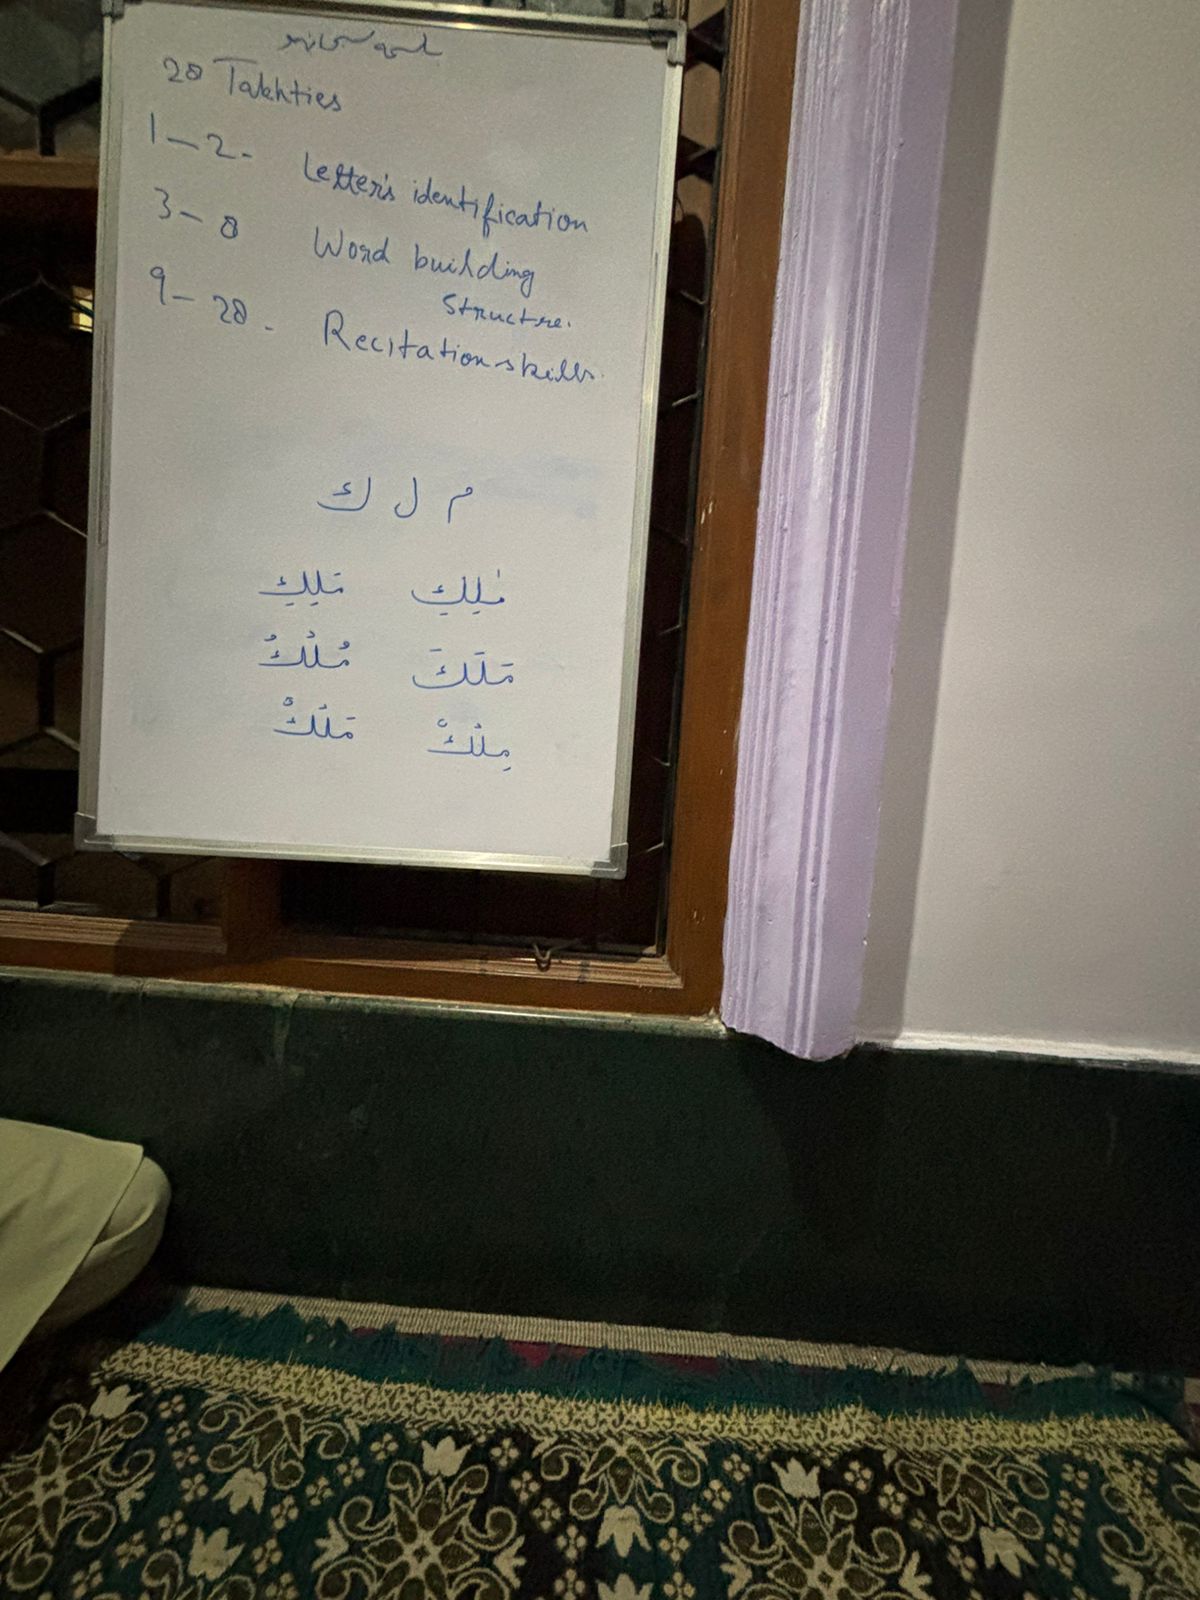 20 Takhties
1 – 2 - Letter's identification
3 – 8 Word building
Structre.
9 – 20 - Recitation skills.
م ل ك
مٰلِكِ مَلِكِ
مَلَكَ مُلُكُ
مِلْكْ مَلَكْ